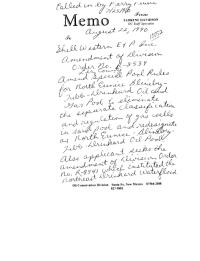 Called in by Larry
Memo
From
FLORENE DAVIDSON
OC Staff Specialist
To August 22, 1990
Shell Western E&P Inc.
Amendment of Division
Order No. R-8539
Amend Special Pool Rules
for North Eunice Blinebry-
Tubb-Drinkard Oil and
Gas Pool to eliminate
the separate classification
and regulation of gas wells
in said pool and redesignate
as North Eunice Blinebry-
Tubb-Drinkard Oil Pool
Also applicant seeks the
amendment of Division Order
No. R-8541 which instituted the
Northeast Drinkard Waterflood
Oil Conservation Division Santa Fe, New Mexico 87504-2088